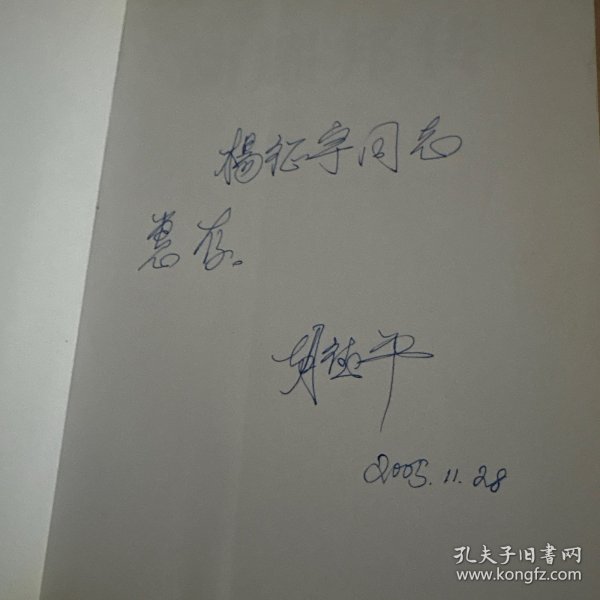 楊征宇同志
惠存。
胡德平
2005.11.28
孔夫子旧書网
www.kongfz.com